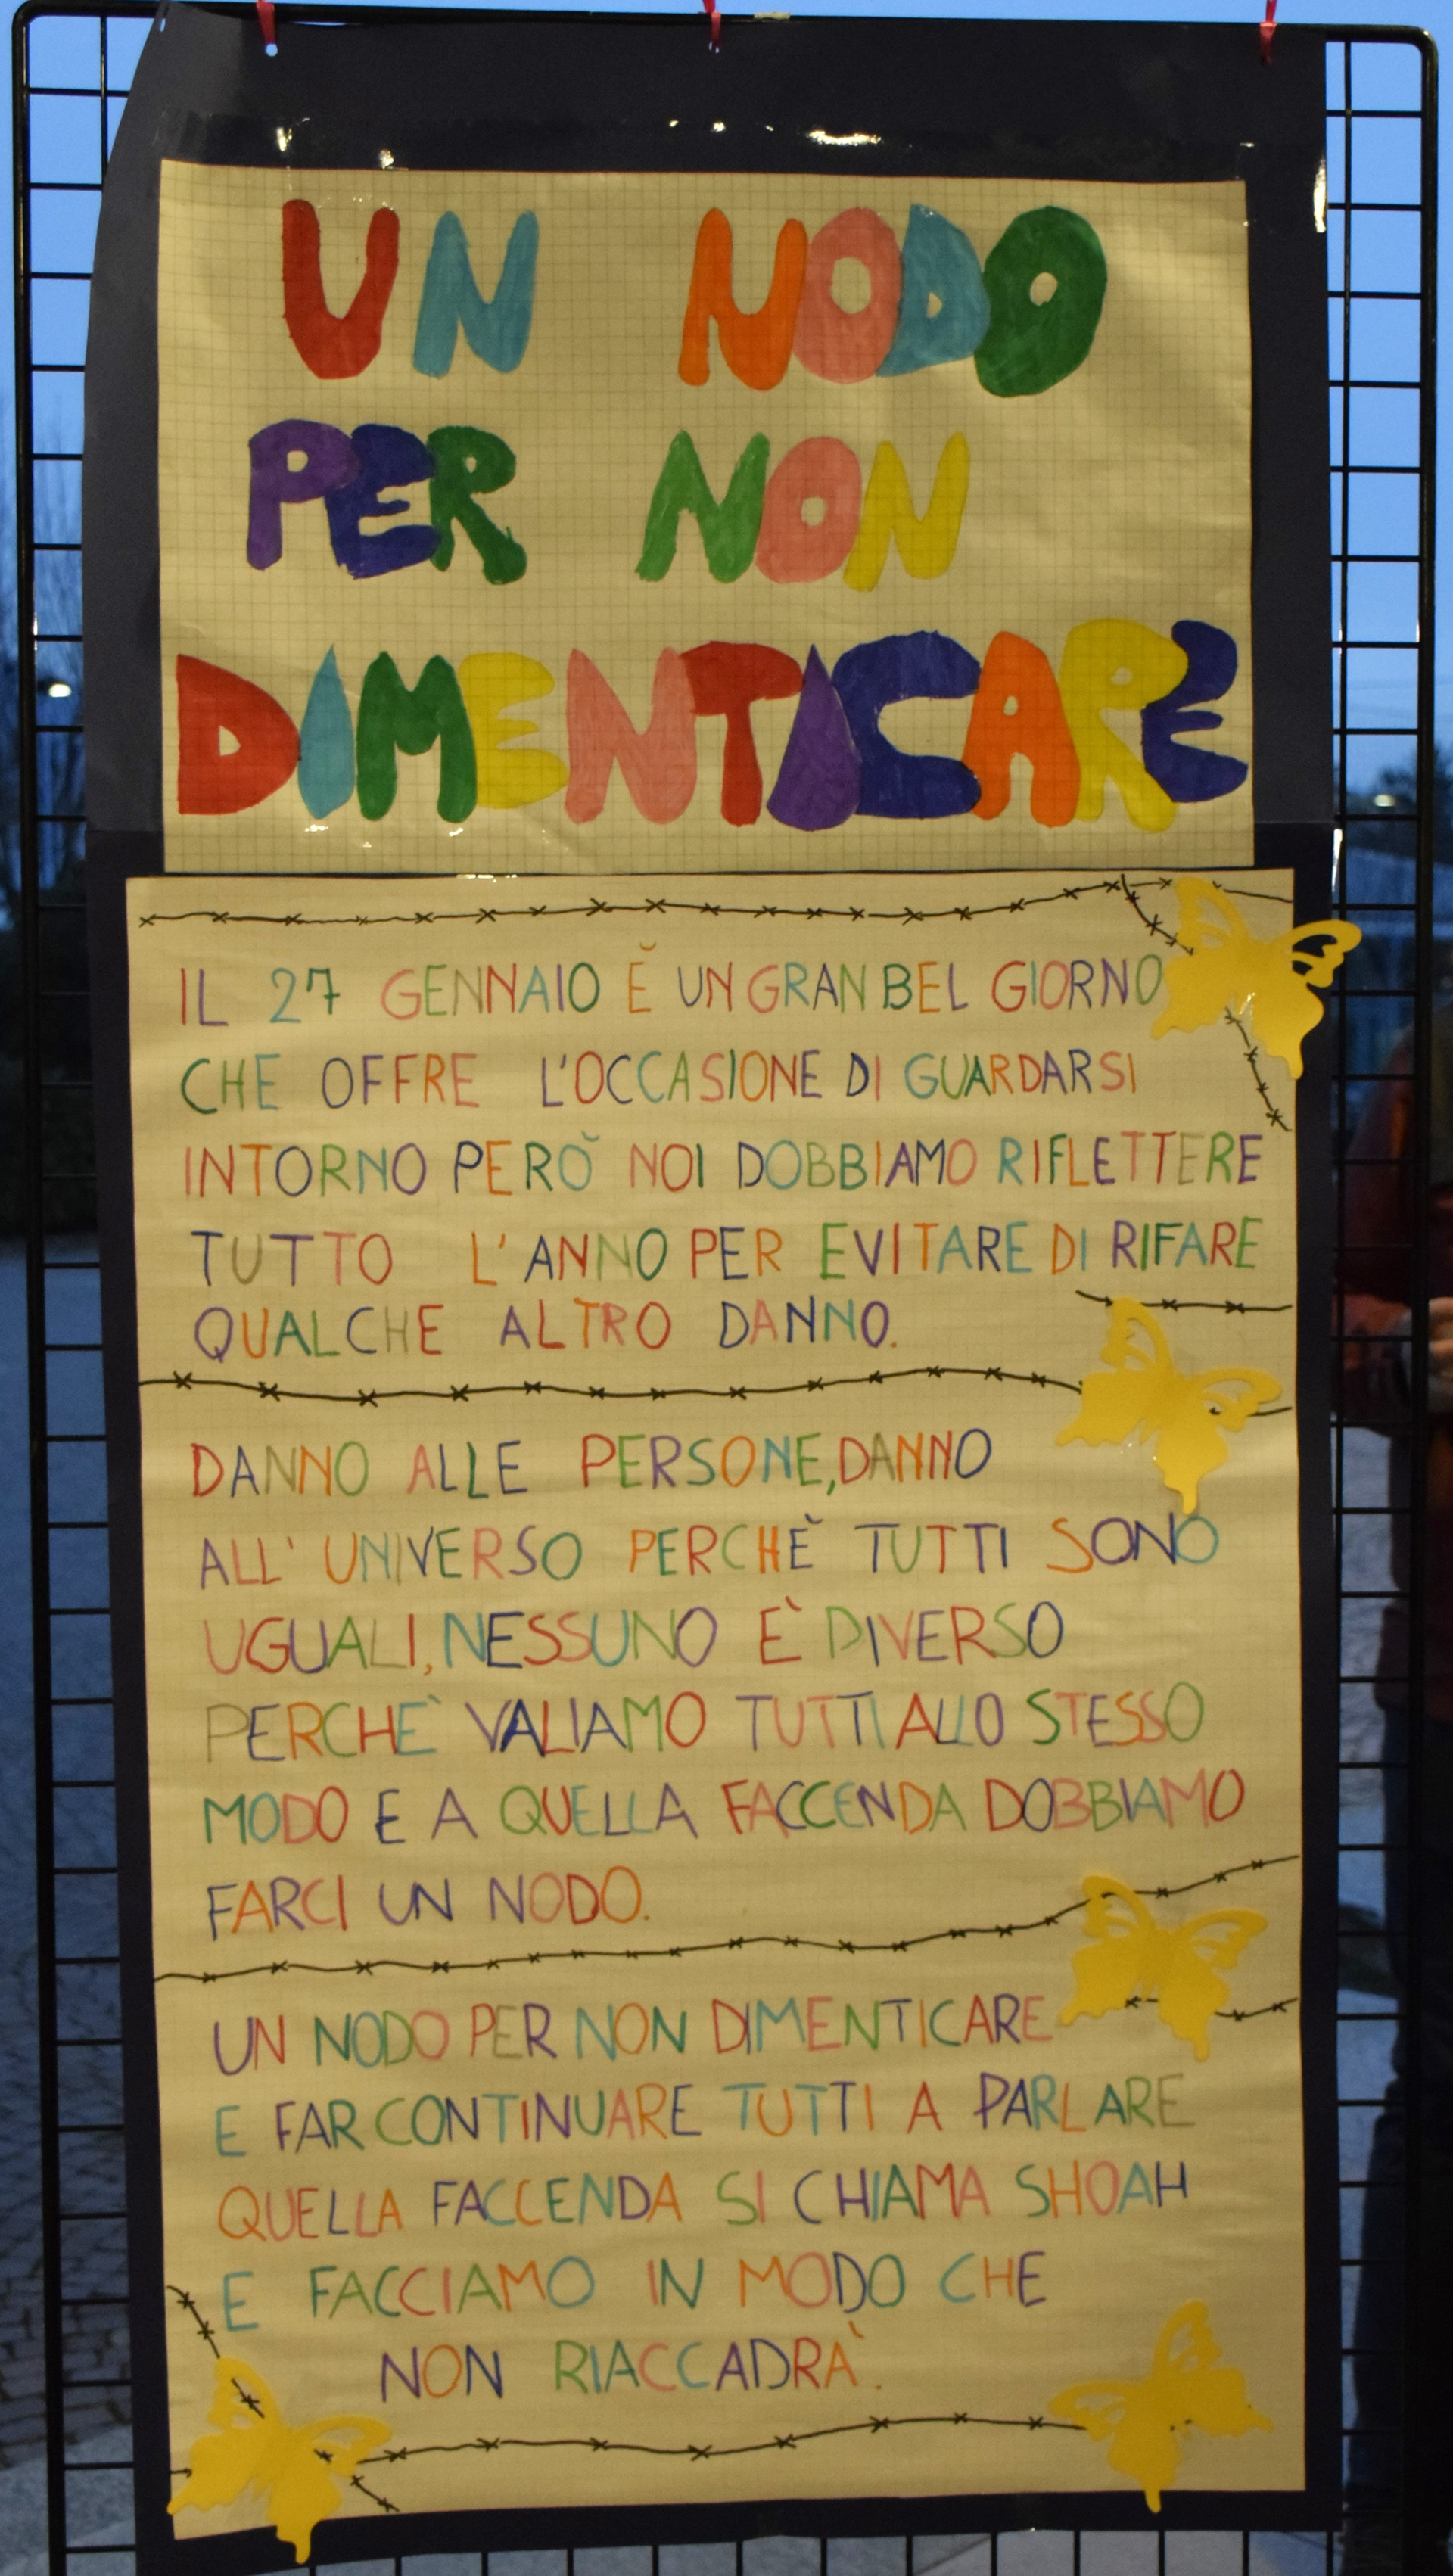 UN NODO
PER NON
DIMENTICARE
IL 27 GENNAIO È UN GRAN BEL GIORNO
CHE OFFRE L'OCCASIONE DI GUARDARSI
INTORNO PERÒ NOI DOBBIAMO RIFLETTERE
TUTTO L'ANNO PER EVITARE DI RIFARE
QUALCHE ALTRO DANNO.
DANNO ALLE PERSONE, DANNO
ALL' UNIVERSO PERCHÈ TUTTI SONO
UGUALI, NESSUNO E' DIVERSO
PERCHE' VALIAMO TUTTI ALLO STESSO
MODO E A QUELLA FACCENDA DOBBIAMO
FARCI UN NODO.
UN NODO PER NON DIMENTICARE
E FAR CONTINUARE TUTTI A PARLARE
QUELLA FACCENDA SI CHIAMA SHOAH
E FACCIAMO IN MODO CHE
NON RIACCADRÀ.